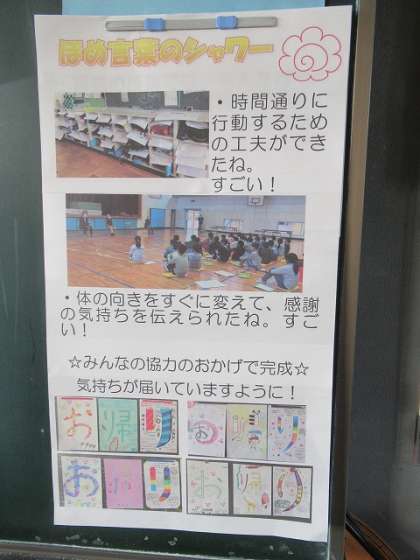 ほめ言葉のシャワー
・時間通りに
行動するため
の工夫ができ
たね。
すごい！
・体の向きをすぐに変えて、感謝
の気持ちを伝えられたね。すご
い！
☆みんなの協力のおかげで完成☆
気持ちが届いていますように！
お帰り
お帰り
おかり